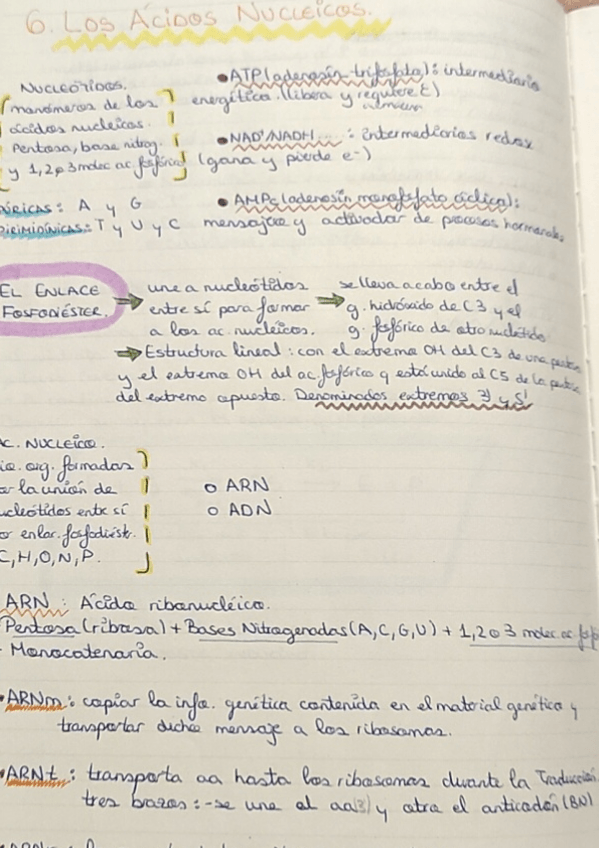 6. Los Ácidos Nucleicos.
Nucleótidos.
monómeros de los
ácidos nucleicos.
Pentosa, base nitrog.
y 1, 2 o 3 molec ac. fosfórico
• ATP (adenosín trifosfato): intermediario
energética. (libera y requiere E)
almacen
• NAD+/NADH : intermediarios redox
(gana y pierde e-)
• AMPc (adenosín monofosfato cíclico):
mensajero y activador de procesos hormonales
púricas: A y G
pirimidínicas: T y U y C
EL ENLACE
FOSFODIÉSTER.
→ une a nucleótidos
entre sí para formar
a los ac. nucleicos.
→ se lleva a cabo entre el
g. hidróxido de C3 y el
g. fosfórico de otro nucleótido
→ Estructura lineal: con el extremo OH del C3 de una pentosa
y el extremo OH del ac. fosfórico q está unido al C5 de la pentosa
del extremo opuesto. Denominados extremos 3' y 5'
AC. NUCLEICO.
org. formadas
la unión de
nucleótidos entre sí
enlac. fosfodiéstr.
C, H, O, N, P.
○ ARN
○ ADN
ARN : Ácido ribonucléico.
Pentosa (ribosa) + Bases Nitrogenadas (A, C, G, U) + 1, 2 o 3 molec. ac fosf
- Monocatenaria.
• ARNm : copiar la info. genética contenida en el material genético y
transportar dicho mensaje a los ribosomas.
• ARNt : transporta aa hasta los ribosomas durante la Traducción.
tres brazos : - se une el aa (3) y otra el anticodón (BN)